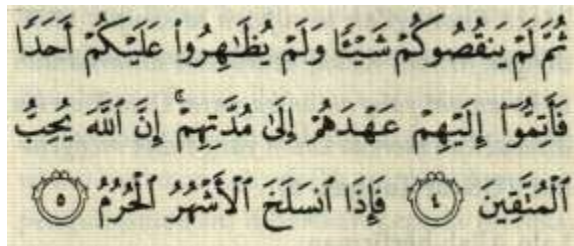 ثُمَّ لَمْ يَنقُصُوكُمْ شَيْـًٔا وَلَمْ يُظَـٰهِرُوا۟ عَلَيْكُمْ أَحَدًا
فَأَتِمُّوٓا۟ إِلَيْهِمْ عَهْدَهُمْ إِلَىٰ مُدَّتِهِمْ ۚ إِنَّ ٱللَّهَ يُحِبُّ
ٱلْمُتَّقِينَ ٤ فَإِذَا ٱنسَلَخَ ٱلْأَشْهُرُ ٱلْحُرُمُ ٥